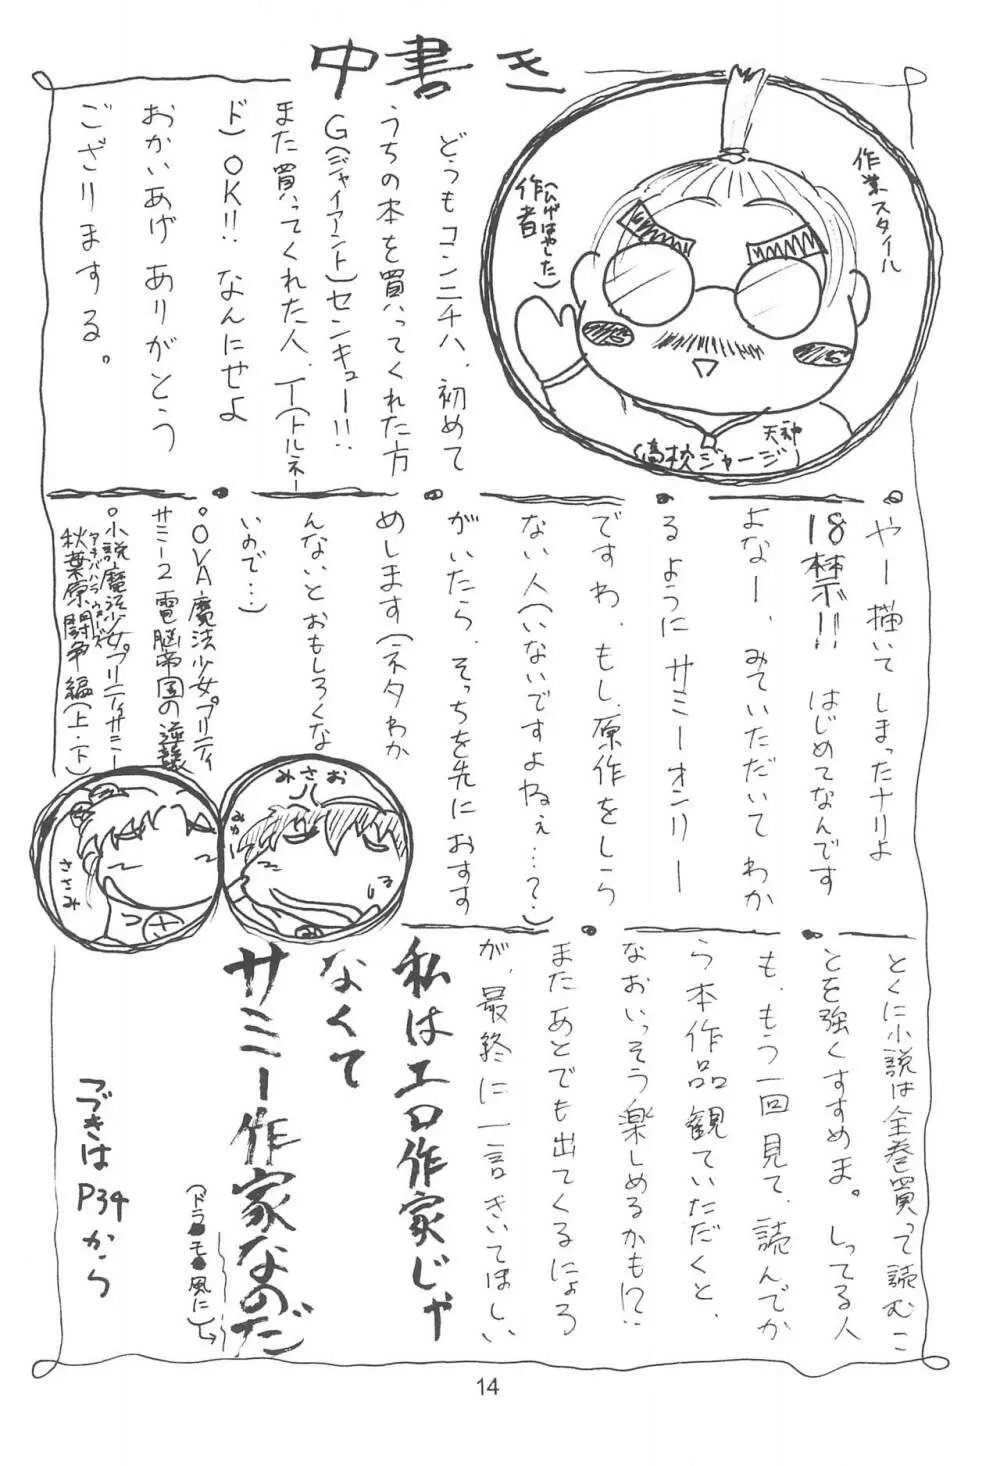 中書き
作業スタイル
作者
(ひげはやした)
天神
(高校ジャージ)
どうもコンニチハ、初めて
うちの本を買ってくれた方
G(ジャイアント)センキュー!!
また買ってくれた人、T(トルネー
ド)OK!! なんにせよ
おかいあげありがとう
ござりまする。
やー描いてしまったナリよ
18禁!! はじめてなんです
よなー、みていただいてわか
るようにサミーオンリー
ですわ。もし、原作をしら
ない人(いないですよねぇ…?)
がいたら、そっちを先におすす
めします(ネタわか
んないとおもしろくな
いので…)
○OVA魔法少女プリティ
サミー2電脳帝国の逆襲
○小説魔法少女プリティサミー
秋葉原闘争編(上・下)
アキバハラ
みさお
ささみ
とくに小説は全巻買って読むこ
とを強くすすめま。しってる人
も、もう一回見て、読んでか
ら本作品観ていただくと、
なおいっそう楽しめるかも!?
またあとでも出てくるにょろ
が、最終に一言きいてほしい
私はエロ作家じゃ
なくて
サミー作家なのだ
(ドラ●モ●風に)
つづきは
P34から
14